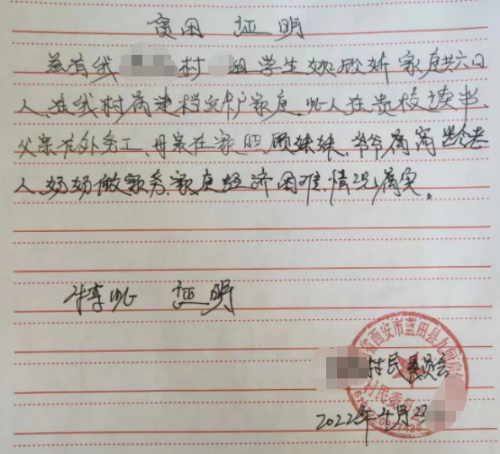 贫困 证明
兹有我 村 组学生姚欣妍家庭共六口
人,在我村属建档立卡户家庭,此人在贵校读书,
父亲在外务工,母亲在家照顾妹妹,爷爷属高龄老
人,奶奶做家务,家庭经济困难,情况属实。
特此 证明
村民委员会
省西安市蓝田县九间房
村民委员会
2022年 月27